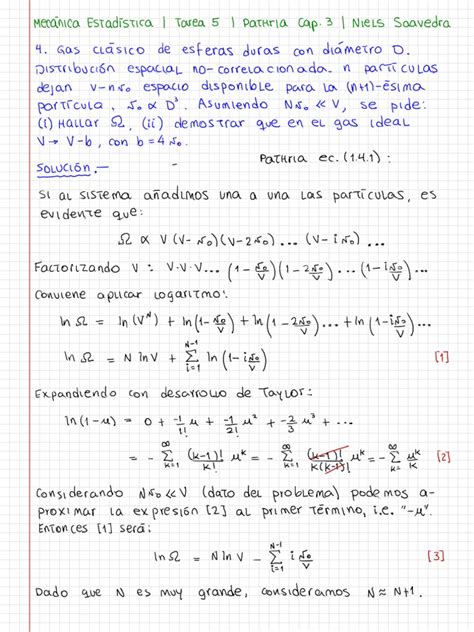 Mecánica Estadística | Tarea 5 | Pathria Cap. 3 | Niels Saavedra
4. Gas clásico de esferas duras con diámetro D.
Distribución espacial no-correlacionada. n partículas
dejan V-nv₀ espacio disponible para la (n+1)-ésima
partícula, v₀ ∝ D³. Asumiendo Nv₀ ≪ V, se pide:
(i) Hallar Ω, (ii) demostrar que en el gas ideal
V→ V-b, con b = 4v₀.
Pathria ec. (1.4.1):
Solución.-
Si al sistema añadimos una a una las partículas, es
evidente que:
Ω ∝ V (V-v₀)(V-2v₀) ... (V-iv₀) ...
Factorizando V : V·V·V... (1 - v₀/V)(1 - 2v₀/V) ... (1 - iv₀/V) ...
Conviene aplicar logaritmo:
ln Ω = ln(V^N) + ln(1 - v₀/V) + ln(1 - 2v₀/V) ... + ln(1 - iv₀/V)
ln Ω = N ln V + Σ_{i=1}^{N-1} ln(1 - i v₀/V) [1]
Expandiendo con desarrollo de Taylor:
ln(1-u) = 0 + -1/1! u + -1/2! u² + -2/3 u³ + ...
= - Σ_{k=1}^{∞} (k-1)!/k! u^k = - Σ_{k=1}^{∞} (k-1)!/k(k-1)! u^k = - Σ_{k=}^{∞} u^k/k [2]
Considerando Nv₀ ≪ V (dato del problema) podemos a-
proximar la expresión [2] al primer término, i.e. "-u".
Entonces [1] será:
ln Ω = N ln V - Σ_{i=1}^{N-1} i v₀/V [3]
Dado que N es muy grande, consideramos N ≈ N+1.